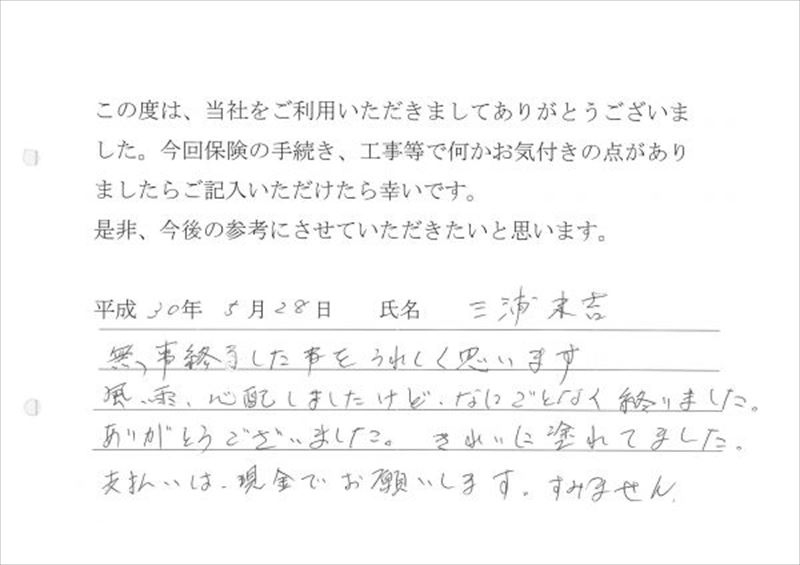 この度は、当社をご利用いただきましてありがとうございま
した。今回保険の手続き、工事等で何かお気付きの点があり
ましたらご記入いただけたら幸いです。
是非、今後の参考にさせていただきたいと思います。
平成 30年 5月28日 氏名 三浦末吉
無事終了した事をうれしく思います
風、雨、心配しましたけど、なにごとなく終りました。
ありがとうございました。 きれいに塗れてました。
支払いは、現金でお願いします。すみません。